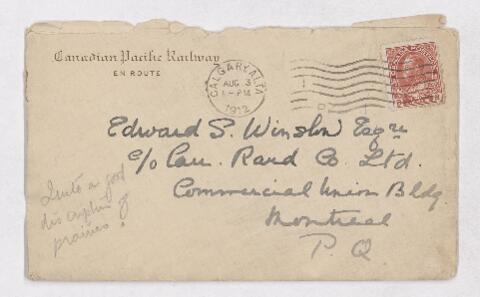 Canadian Pacific Railway
EN ROUTE
CALGARY, ALTA
AUG 3
PM
1912
Edward S. Winslow Esqre
c/o Can. Rand Co. Ltd.
Commercial Union Bldg.
Montreal
P. Q.
Quite a good
discription of
prairies!